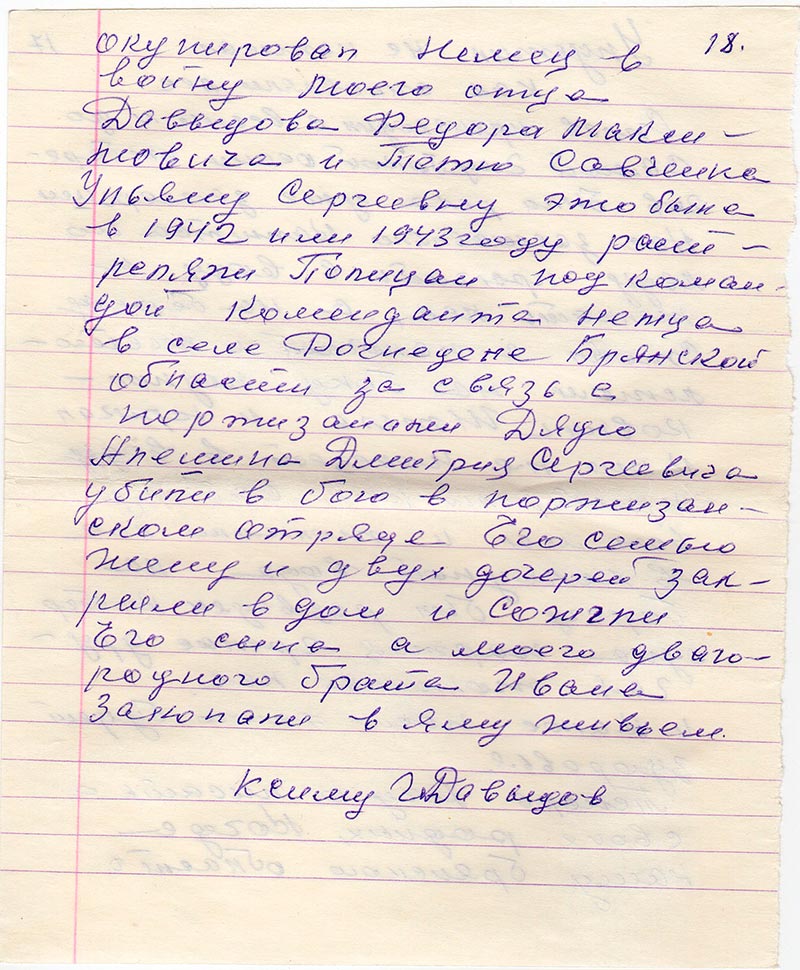 18.
окупировал Немец в
войну моего отца
Давыдова Федора Макси-
мовича и Тетю Савченка
Ульяну Сергеевну это было
в 1942 или 1943 году раст-
реляли Полицаи под коман-
дой Коменданта немца
в селе Рогнедене Брянской
области за связь с
портизанами Дядю
Алешина Дмитрия Сергеевича
убили в бою в портизан-
ском отряде Его семью
жену и двух дочерей зак-
рыли в дом и Сожгли
Его сына а моего дваю-
родного брата Ивана
Закопали в яму живьем.
К симу Г. Давыдов